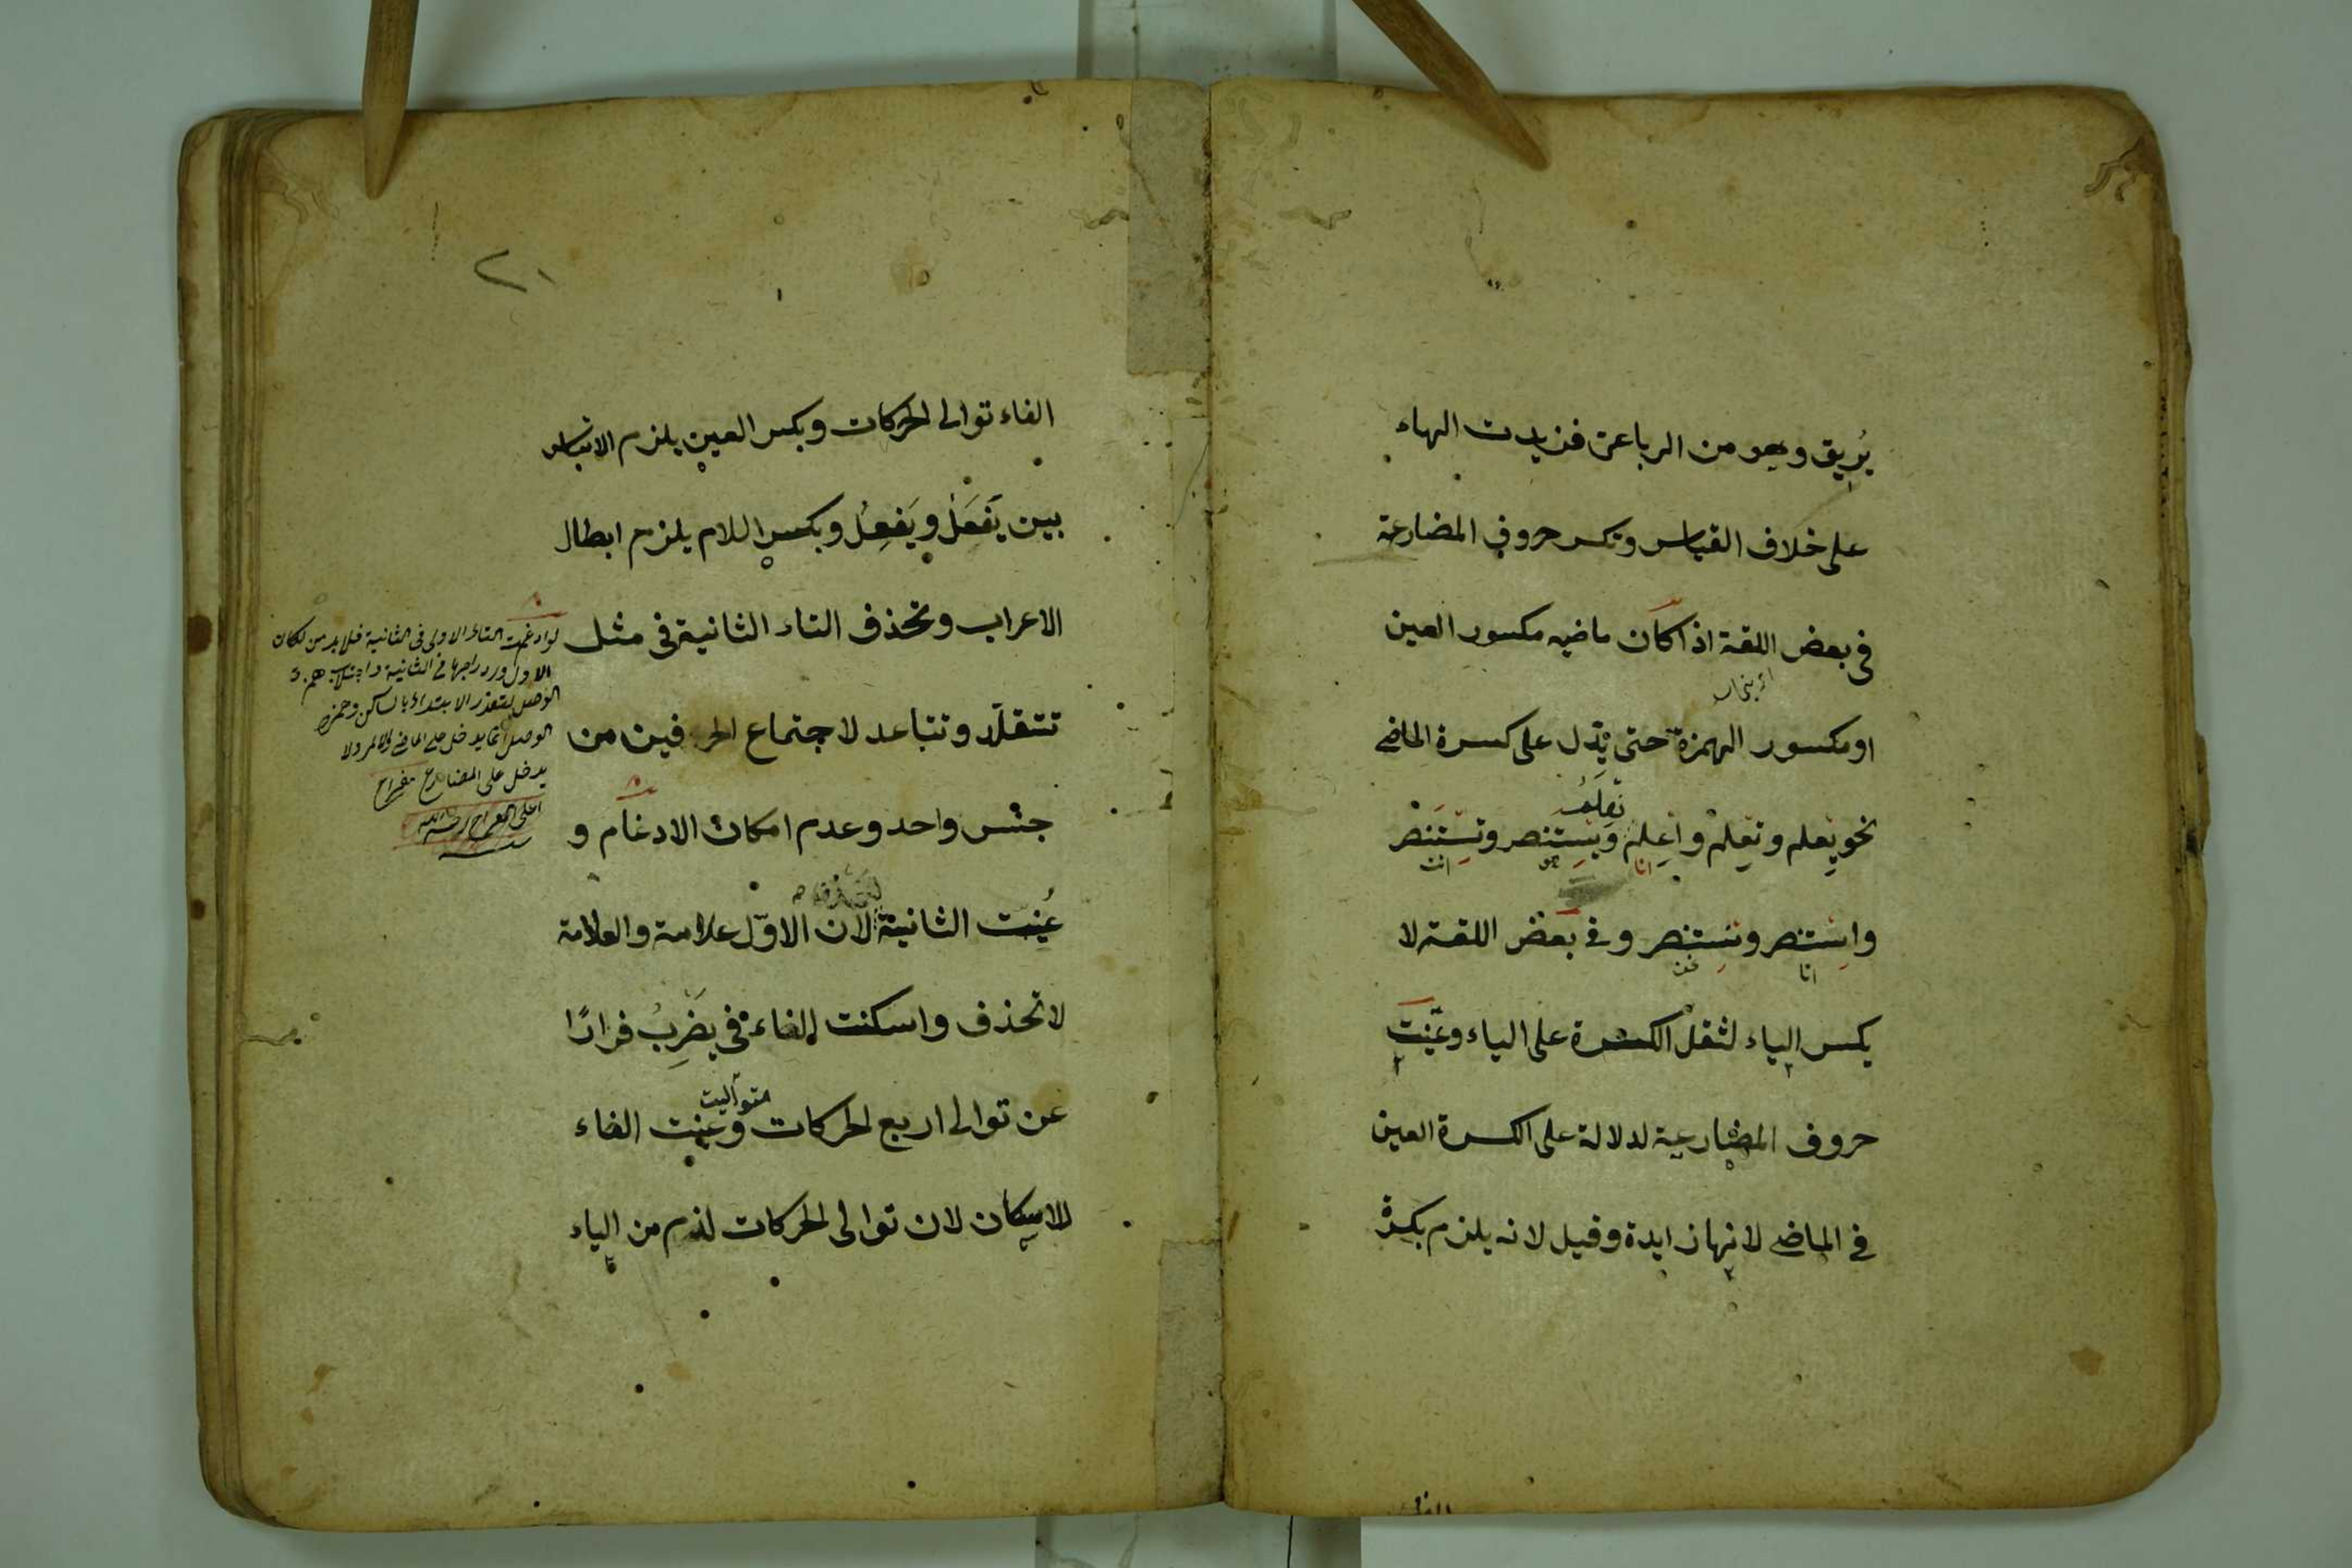 يُريق وهو من الرباعى فزيدت الهاء
على خلاف القياس وتكسر حروف المضارعة
فى بعض اللغة اذا كان ماضيه مكسور العين
او مكسور الهمزة حتى يدل على كسرة الماضى
تِعلَمُ
نحو يِعلم وتِعلم واِعلم ويِستنصر وتِستنصر
انا هو انت
واِستنصر ونِستنصر وفى بعض اللغة لا
انا نحن
يكسر الياء لثقل الكسرة على الياء وعُيّنت
حروف المضارعية لدلالة على الكسرة العين
فى الماضى لانها زايدة وقيل لانه يلزم بكسرة
الفاء
٢١
الفاء توالى الحركات وبكسر العين يلزم الالتباس
بين يَفعَل ويَفعِل وبكسر اللام يلزم ابطال
الاعراب وتحذف التاء الثانية فى مثل
تتقلد وتتباعد لاجتماع الحرفين من
جنس واحد وعدم امكان الادغام و
عُينت الثانية لان الاوّل علامة والعلامة
لا تحذف واسكنت الفاء فى يضرِبُ فرارًا
متواليت
عن توالى اربع الحركات وعينت الفاء
للاسكان لان توالى الحركات لزم من الياء
لو ادغمت التاء الاولى فى الثانية فلا بد من اسكان
الاول ودراجها فى الثانية واجتلاب همزة
الوصل لتعذر الابتداء بالساكن وهمزة
الوصل انما يدخل على الماضى والامر ولا
يدخل على المضارع مفراح